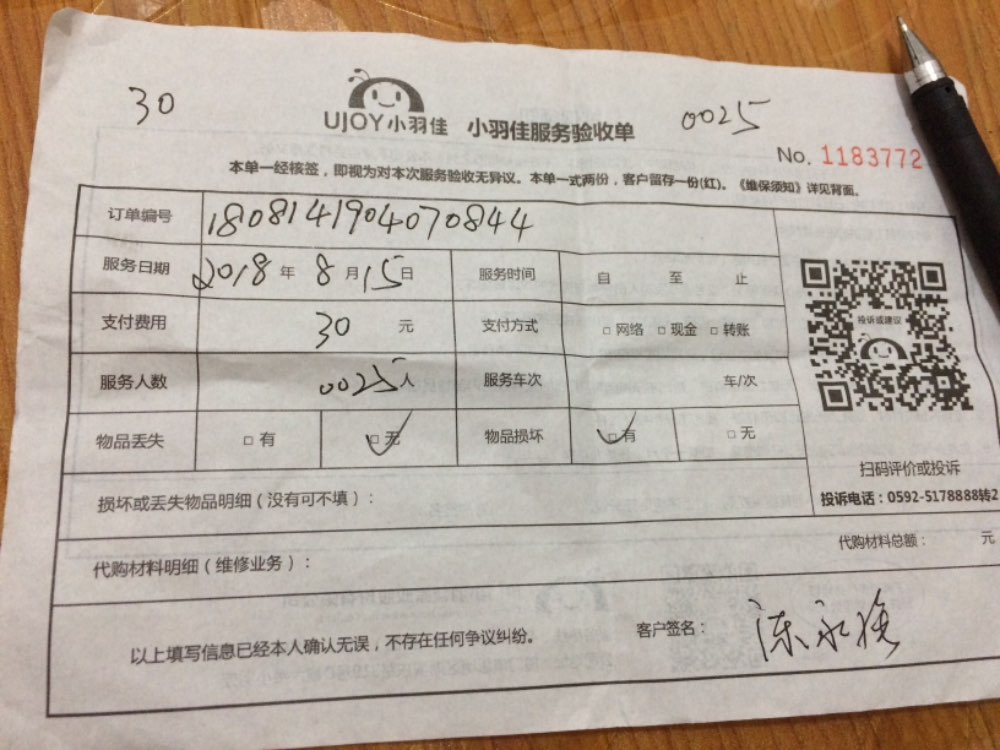 30
0025
UJOY小羽佳 小羽佳服务验收单
No. 1183772
本单一经核签，即视为对本次服务验收无异议。本单一式两份，客户留存一份(红)。《维保须知》详见背面。
订单编号 1808141904070844
服务日期 2018 年 8 月 15 日 服务时间 自 至 止
支付费用 30 元 支付方式 □ 网络 □ 现金 □ 转账
投诉或建议
服务人数 0025 人 服务车次 车/次
物品丢失 □ 有 □ 无 物品损坏 □ 有 □ 无
扫码评价或投诉
投诉电话：0592-5178888转2
损坏或丢失物品明细（没有可不填）：
代购材料总额： 元
代购材料明细（维修业务）：
以上填写信息已经本人确认无误，不存在任何争议纠纷。
客户签名： 陈永